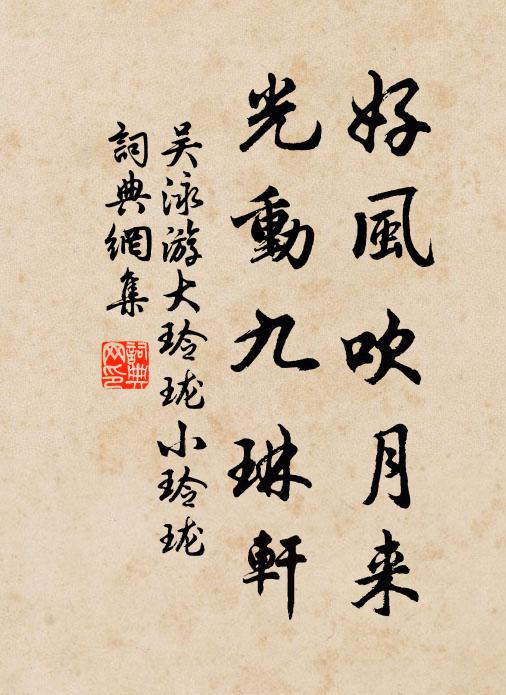 好風吹月来
光動九琳軒
吴泳游大玲珑小玲珑
詞典網集
詞典网印